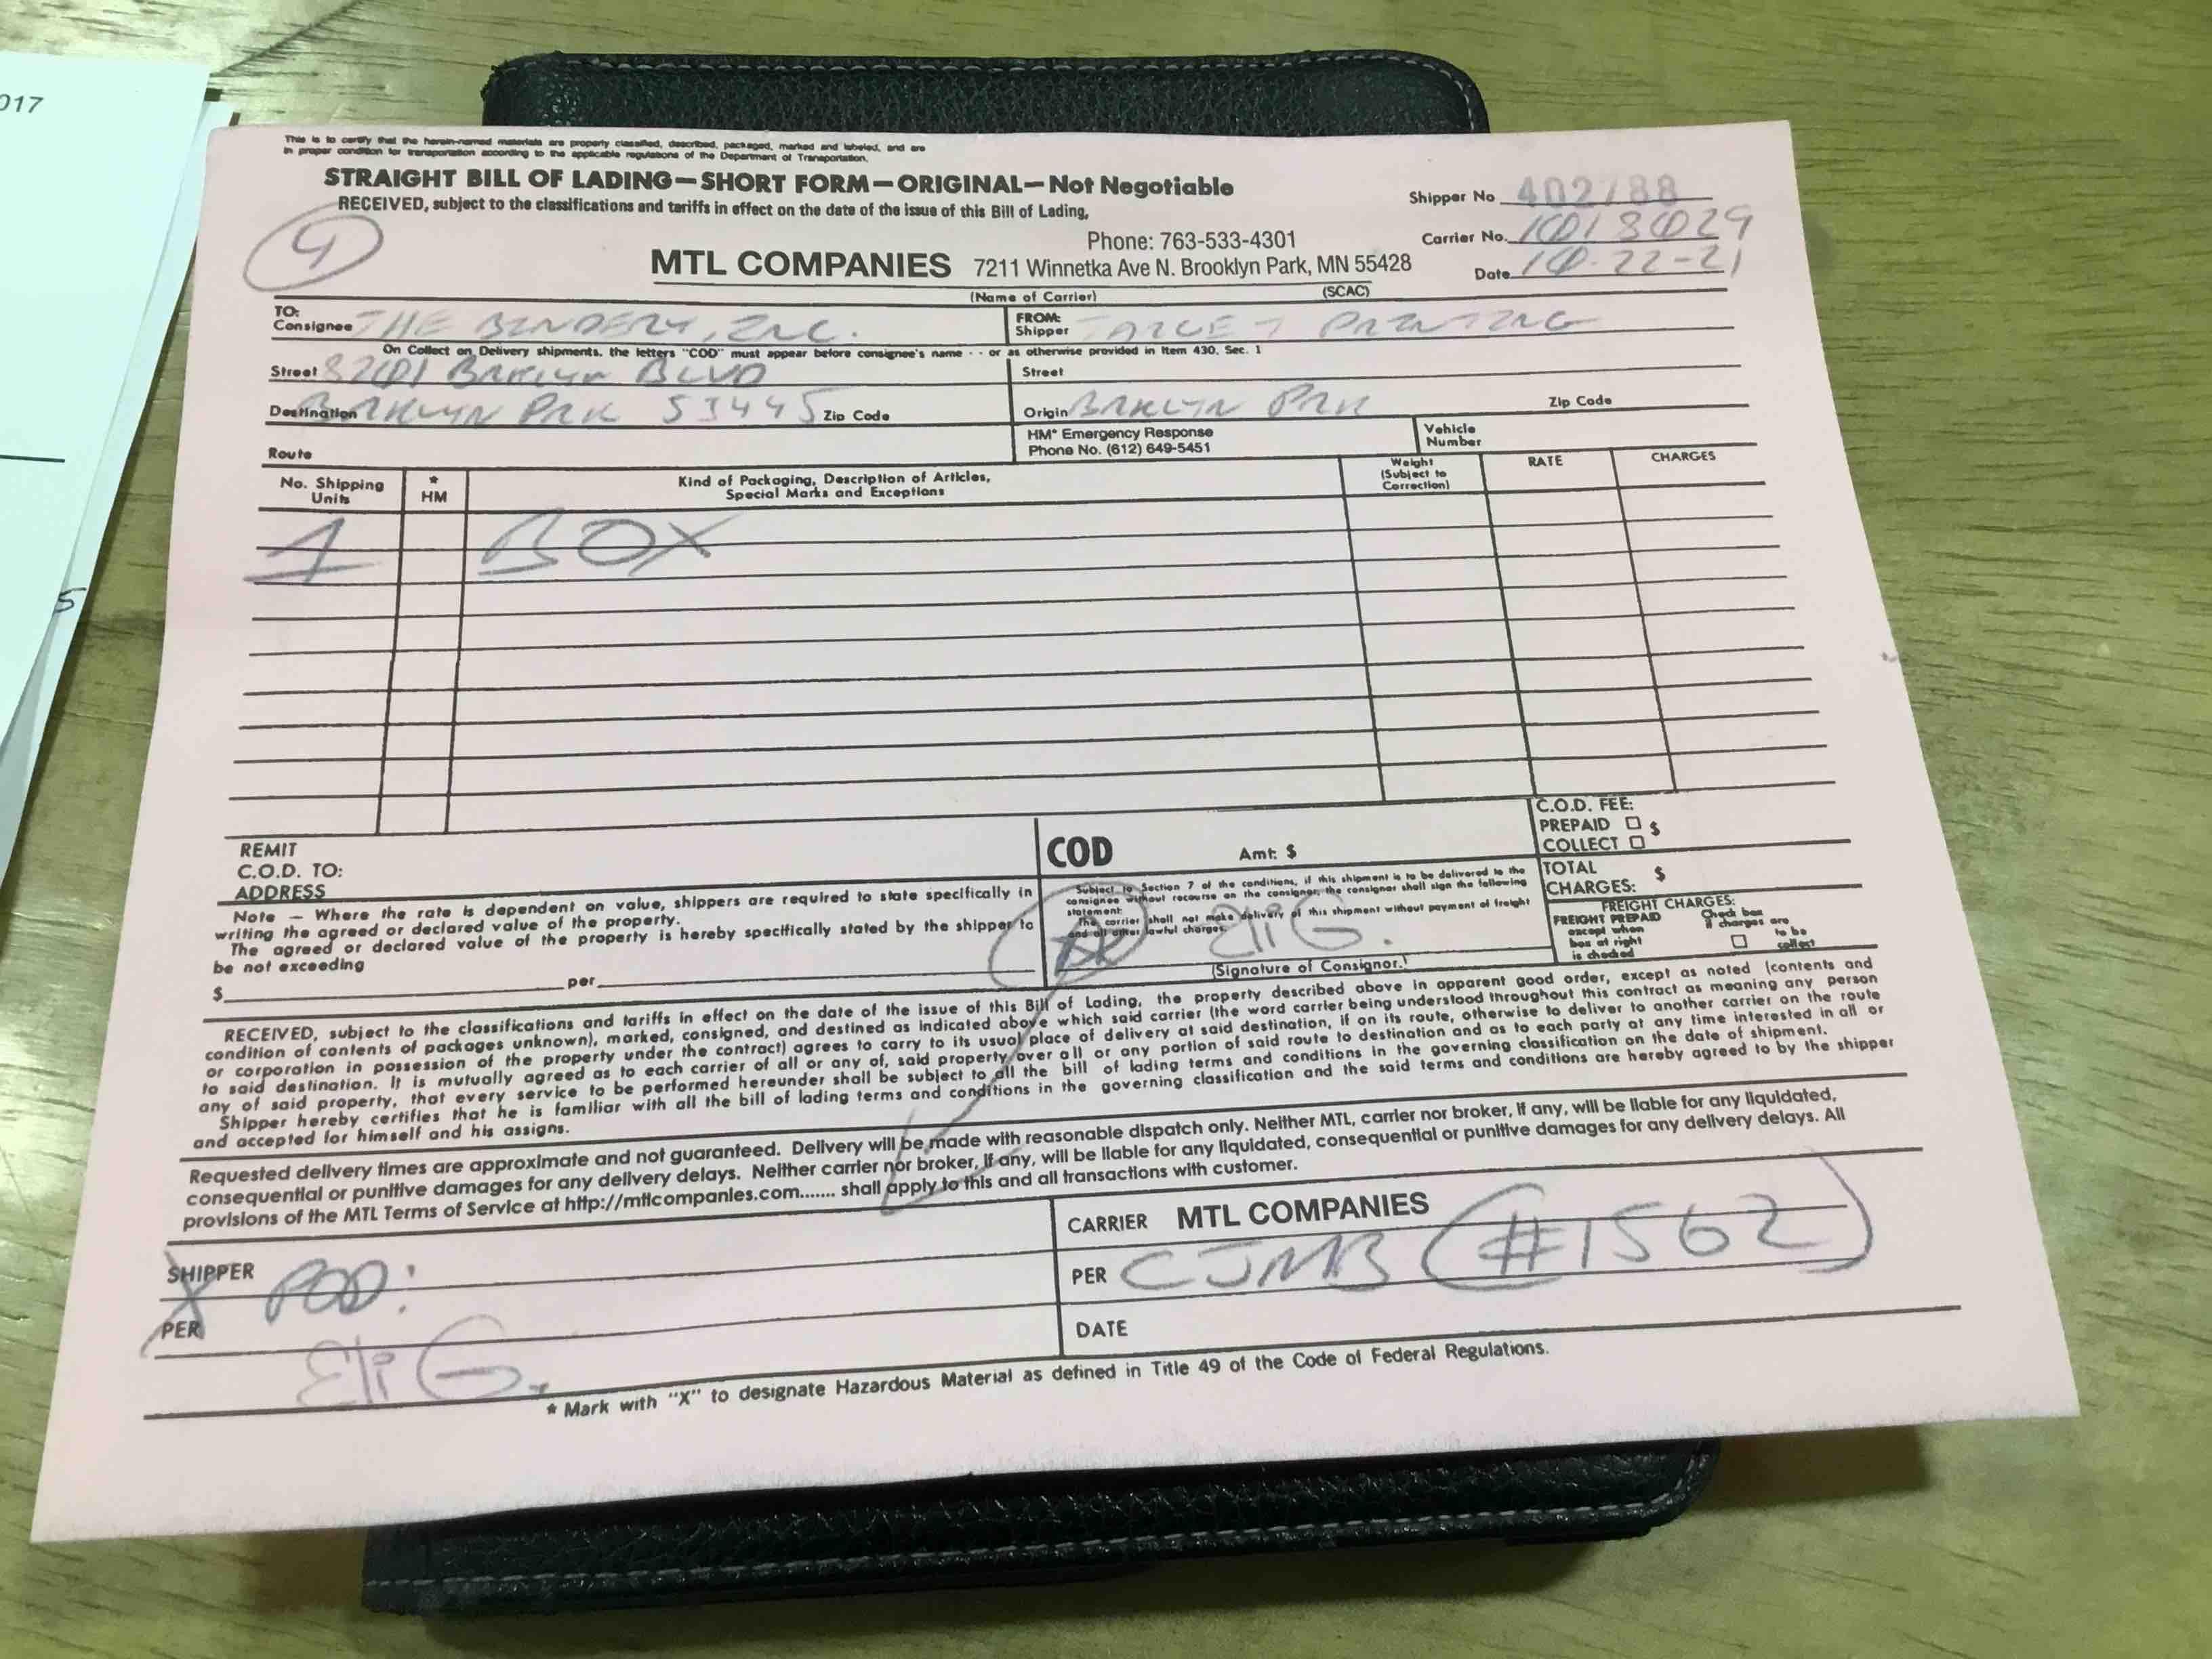 017
5
This is to certify that the herein-named materials are properly classified, described, packaged, marked and labeled, and are
in proper condition for transportation according to the applicable regulations of the Department of Transportation.
STRAIGHT BILL OF LADING—SHORT FORM—ORIGINAL—Not Negotiable
RECEIVED, subject to the classifications and tariffs in effect on the date of the issue of this Bill of Lading,
Shipper No 402788
Carrier No. 1018029
Date 10-22-21
Phone: 763-533-4301
MTL COMPANIES 7211 Winnetka Ave N. Brooklyn Park, MN 55428
(Name of Carrier) (SCAC)
TO: Consignee THE BINDERY, INC.
FROM: Shipper TARGET PRINTING
On Collect on Delivery shipments, the letters "COD" must appear before consignee's name - - or as otherwise provided in Item 430, Sec. 1
Street 8201 BRKLYN BLVD
Street
Destination BRKLYN PRK 55445 Zip Code
Origin BRKLYN PRK Zip Code
Route
HM* Emergency Response
Phone No. (612) 649-5451
Vehicle
Number
No. Shipping
Units
*
HM
Kind of Packaging, Description of Articles,
Special Marks and Exceptions
Weight
(Subject to
Correction)
RATE
CHARGES
1 BOX
REMIT
C.O.D. TO:
ADDRESS
COD Amt: $
C.O.D. FEE:
PREPAID □ $
COLLECT □
Note — Where the rate is dependent on value, shippers are required to state specifically in
writing the agreed or declared value of the property.
The agreed or declared value of the property is hereby specifically stated by the shipper to
be not exceeding
$ per
Subject to Section 7 of the conditions, if this shipment is to be delivered to the
consignee without recourse on the consignor, the consignor shall sign the following
statement:
The carrier shall not make delivery of this shipment without payment of freight
and all other lawful charges.
Eli G.
(Signature of Consignor.)
TOTAL
CHARGES: $
FREIGHT CHARGES:
FREIGHT PREPAID
except when
box at right
is checked
Check box
if charges are
to be
collect
RECEIVED, subject to the classifications and tariffs in effect on the date of the issue of this Bill of Lading, the property described above in apparent good order, except as noted (contents and
condition of contents of packages unknown), marked, consigned, and destined as indicated above which said carrier (the word carrier being understood throughout this contract as meaning any person
or corporation in possession of the property under the contract) agrees to carry to its usual place of delivery at said destination, if on its route, otherwise to deliver to another carrier on the route
to said destination. It is mutually agreed as to each carrier of all or any of, said property over all or any portion of said route to destination and as to each party at any time interested in all or
any of said property, that every service to be performed hereunder shall be subject to all the bill of lading terms and conditions in the governing classification on the date of shipment.
Shipper hereby certifies that he is familiar with all the bill of lading terms and conditions in the governing classification and the said terms and conditions are hereby agreed to by the shipper
and accepted for himself and his assigns.
Requested delivery times are approximate and not guaranteed. Delivery will be made with reasonable dispatch only. Neither MTL, carrier nor broker, if any, will be liable for any liquidated,
consequential or punitive damages for any delivery delays. Neither carrier nor broker, if any, will be liable for any liquidated, consequential or punitive damages for any delivery delays. All
provisions of the MTL Terms of Service at http://mtlcompanies.com....... shall apply to this and all transactions with customer.
SHIPPER
X POD:
PER
Eli G.
CARRIER MTL COMPANIES
PER CJMB (#1562)
DATE
* Mark with "X" to designate Hazardous Material as defined in Title 49 of the Code of Federal Regulations.